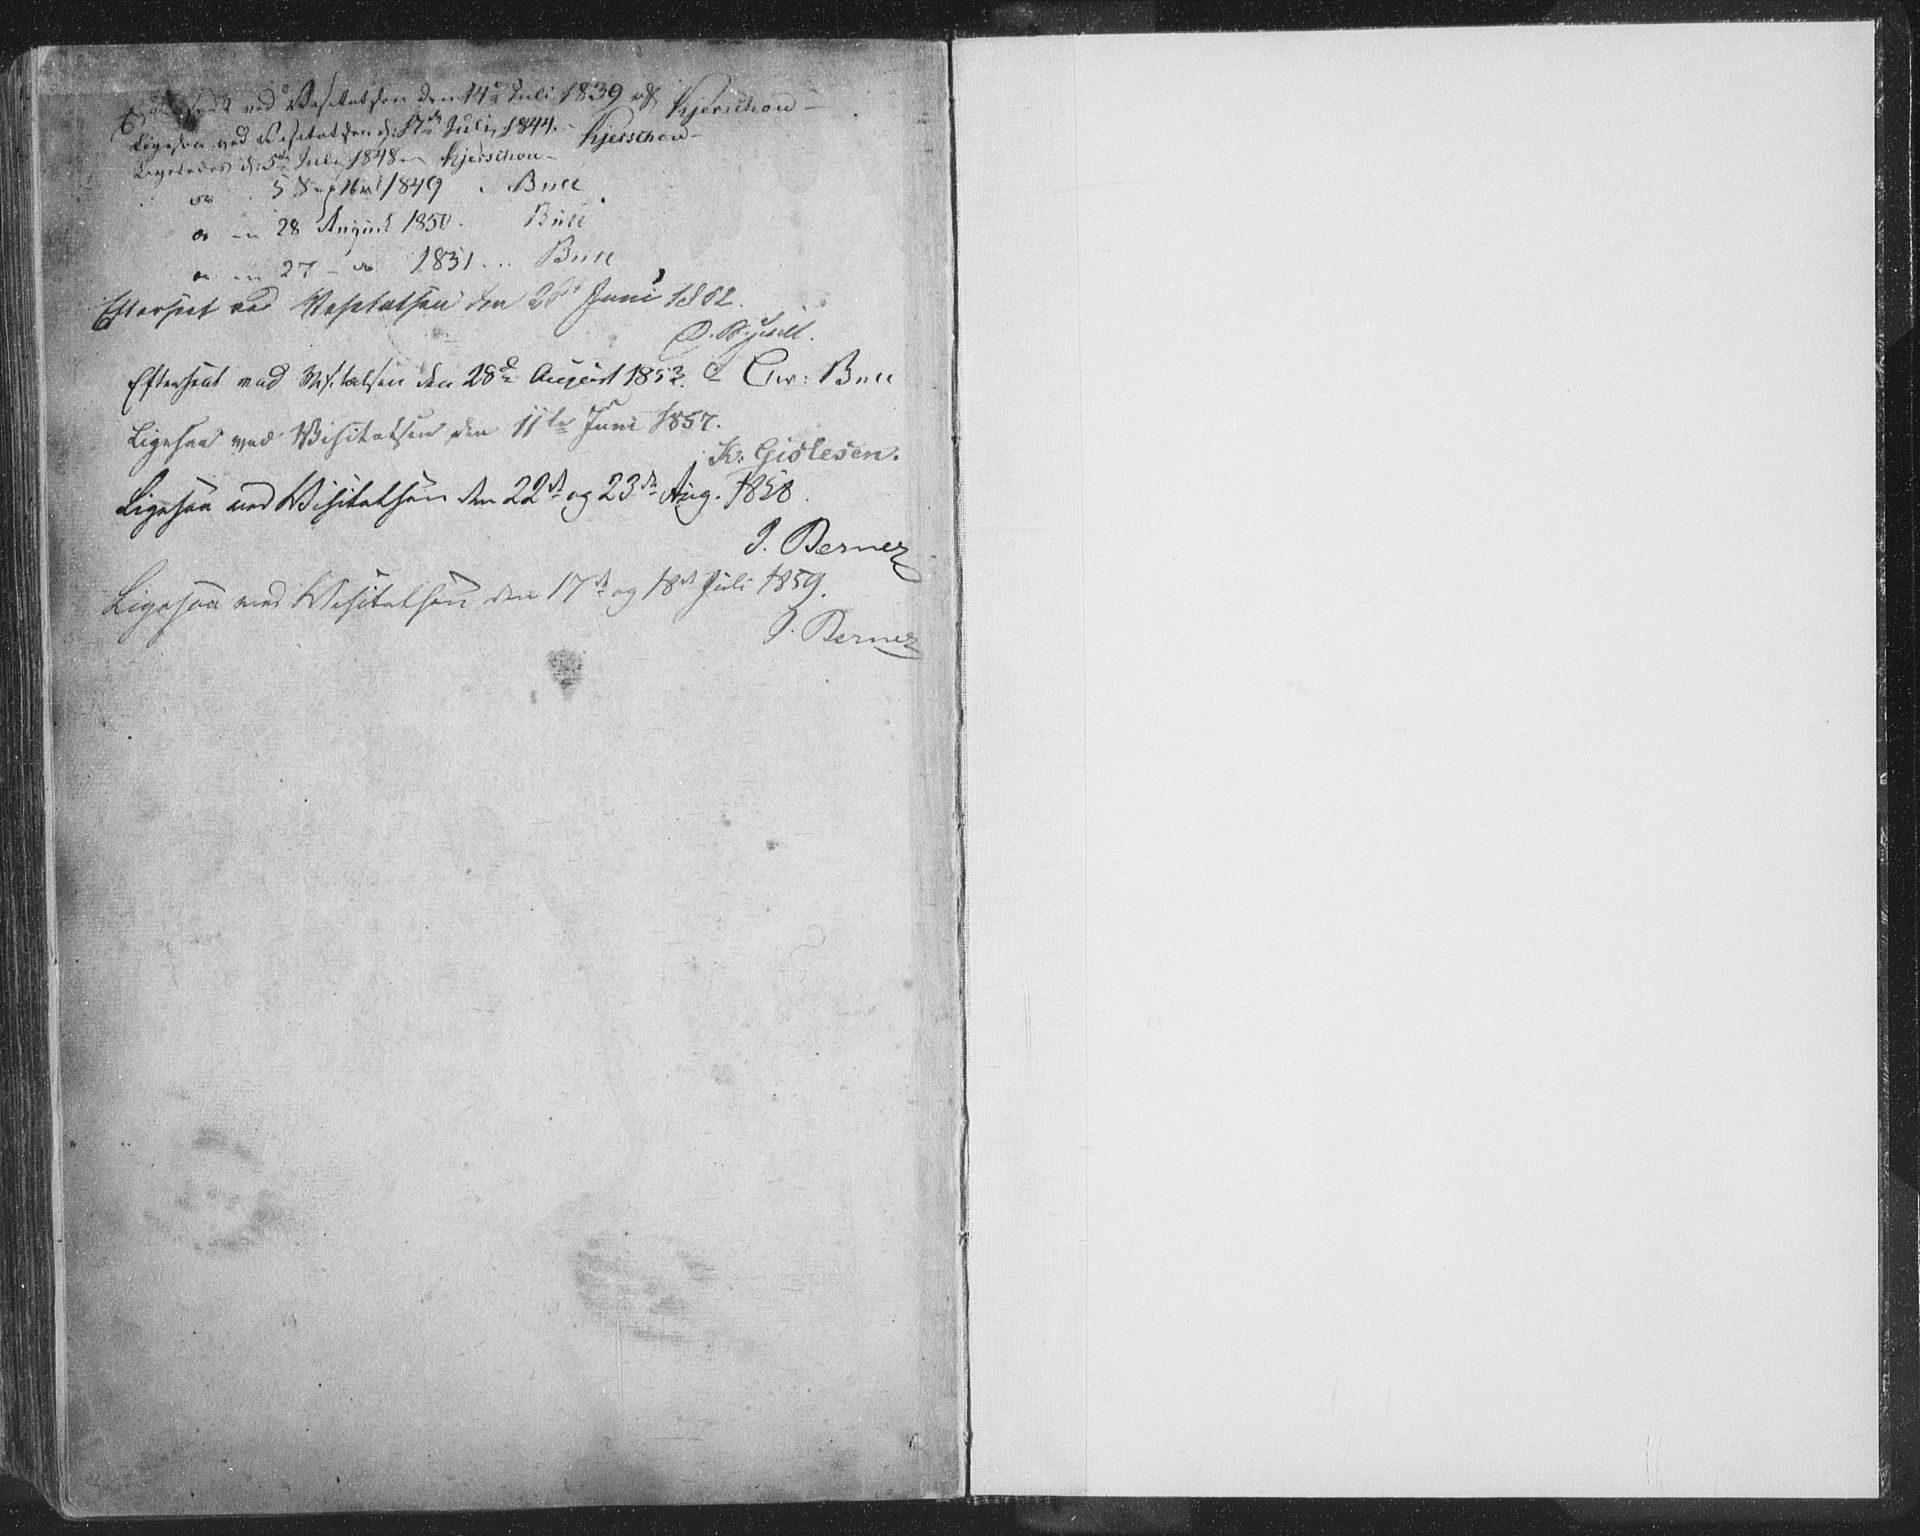 Efterseet ved Visitatsen den 14de Juli 1839 af Kjerschow
Ligesaa ved Visitatsen d: 17de Juli 1844. Kjerschow
Ligeledes d: 5te Juli 1848 Kjerschow
do 5 Septbr 1849 Bull
do 28 August 1850. Bull
do 27 - do 1851 Bull
Efterseet ved Visitatsen den Juni 1852.
Efterseet ved Visitatsen den 28de August 1853. Chr: Bull
Ligesaa ved Visitatsen den 11te Juni 1857.
K. Gislesen.
Ligesaa ved Visitatsen den 22de og 23de Aug. 1858.
J. Berner
Ligesaa ved Visitatsen den 17de og 18de Juli 1859.
J. Berner